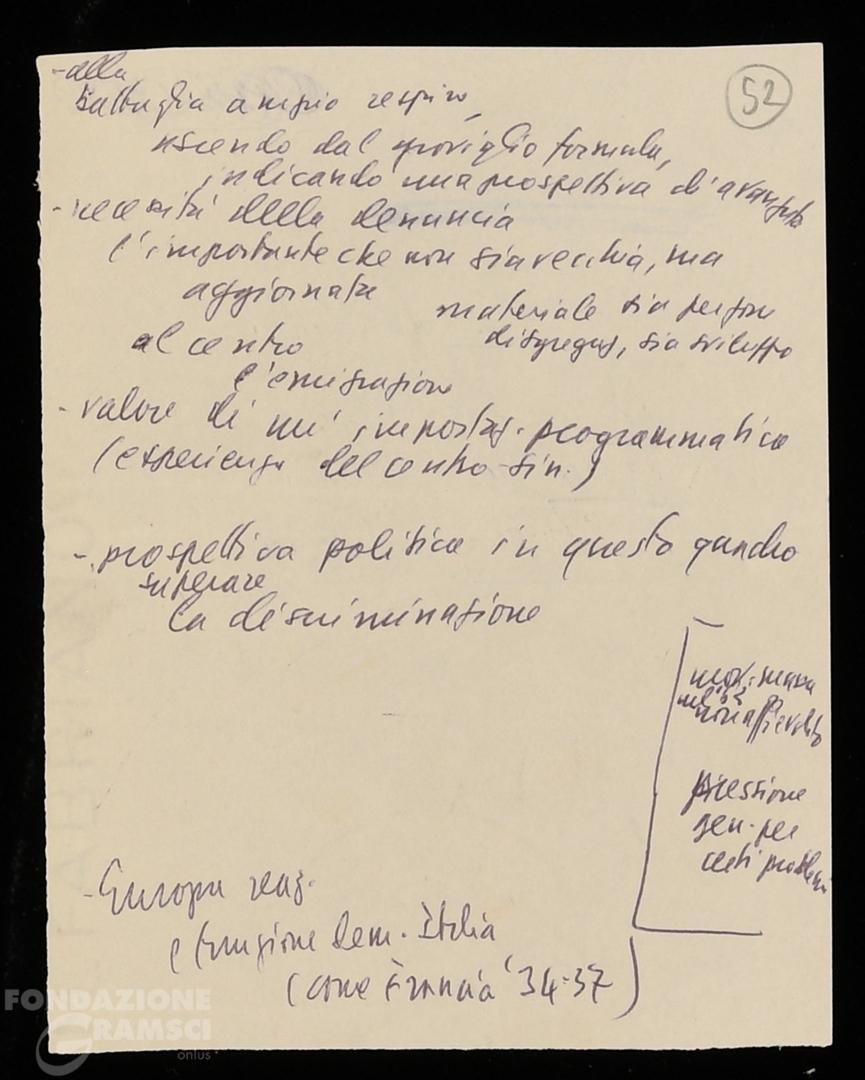 52
- alla
battaglia ampio respiro,
uscendo dal groviglio formula,
indicando una prospettiva di avanzata
- necessità della denuncia
l'importante che non sia vecchia, ma
aggiornata
materiale sia per
disgregaz, sia sviluppo
al centro
l'emigrazione
- valore di un' impostaz. programmatica
(esperienza del centro-sin.)
- prospettiva politica in questo quadro
superare
la discriminazione
mov. massa
nel '62
non affievolito
pressione
gen. per
certi problemi
- Europa reaz.
e funzione dem. Italia
(come Francia '34-37)
FONDAZIONE
GRAMSCI
onlus